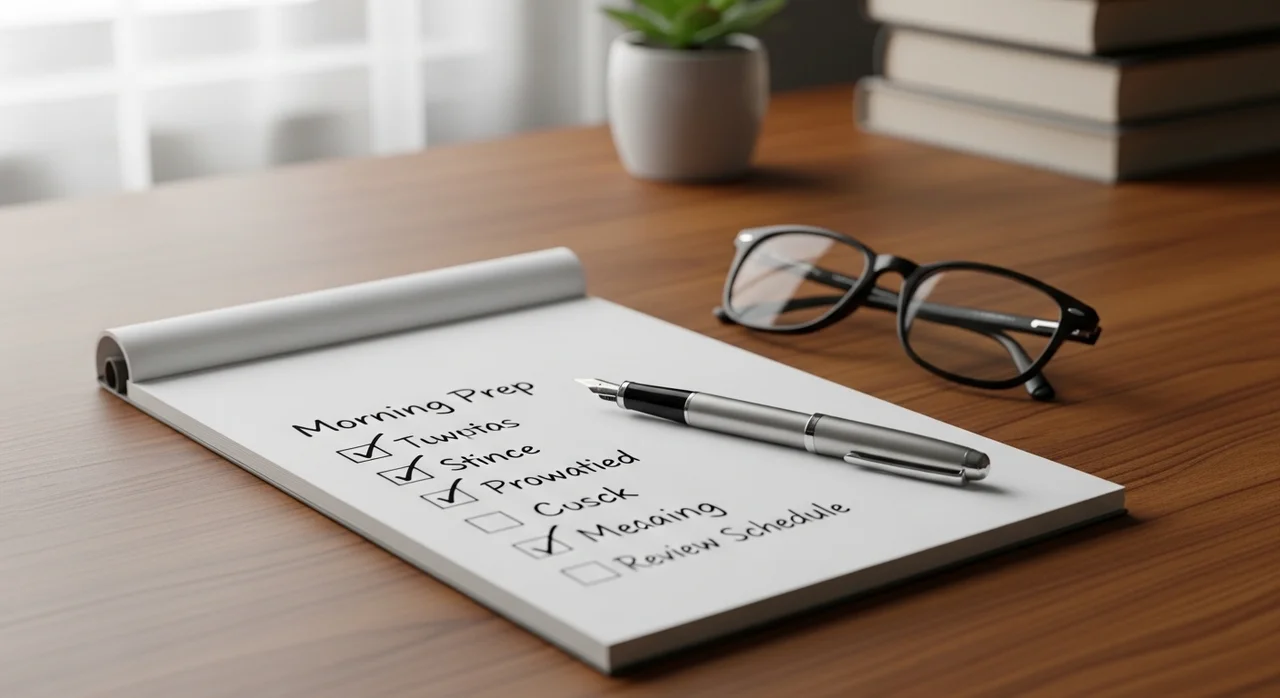 Morning Prep
Tuwpias
Stince
Prowatied
Cusck
Meaaing
Review Schedule